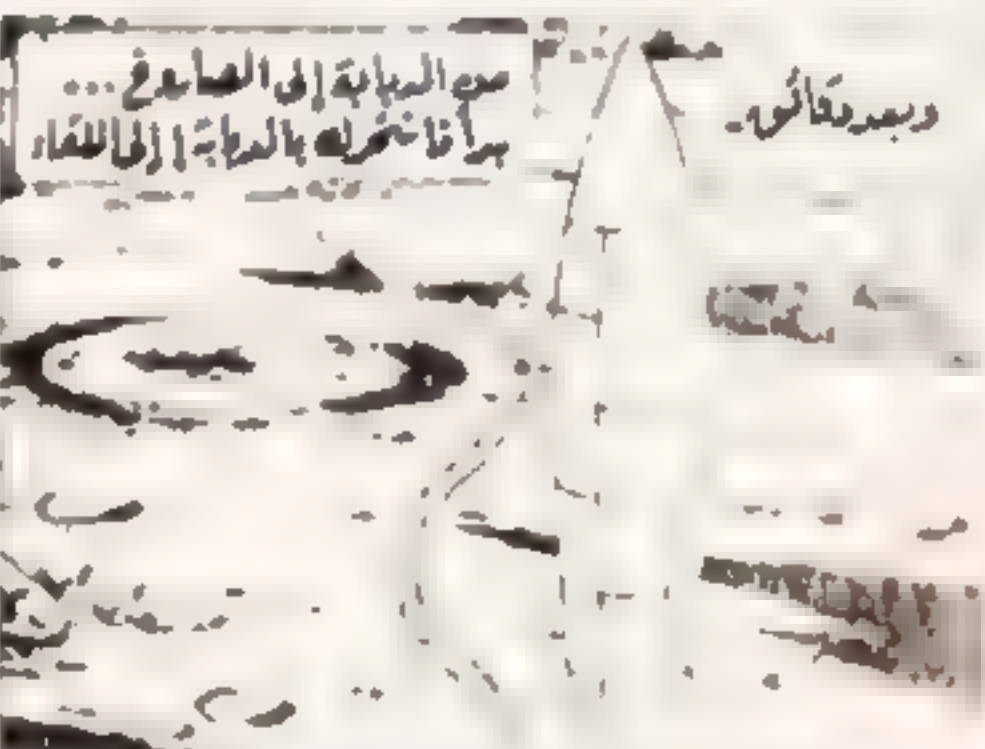 وبعد دقائق..
من الدبابة إلى الصاروخ ...
بدأنا نتحرك بالدبابة إلى اللقاء